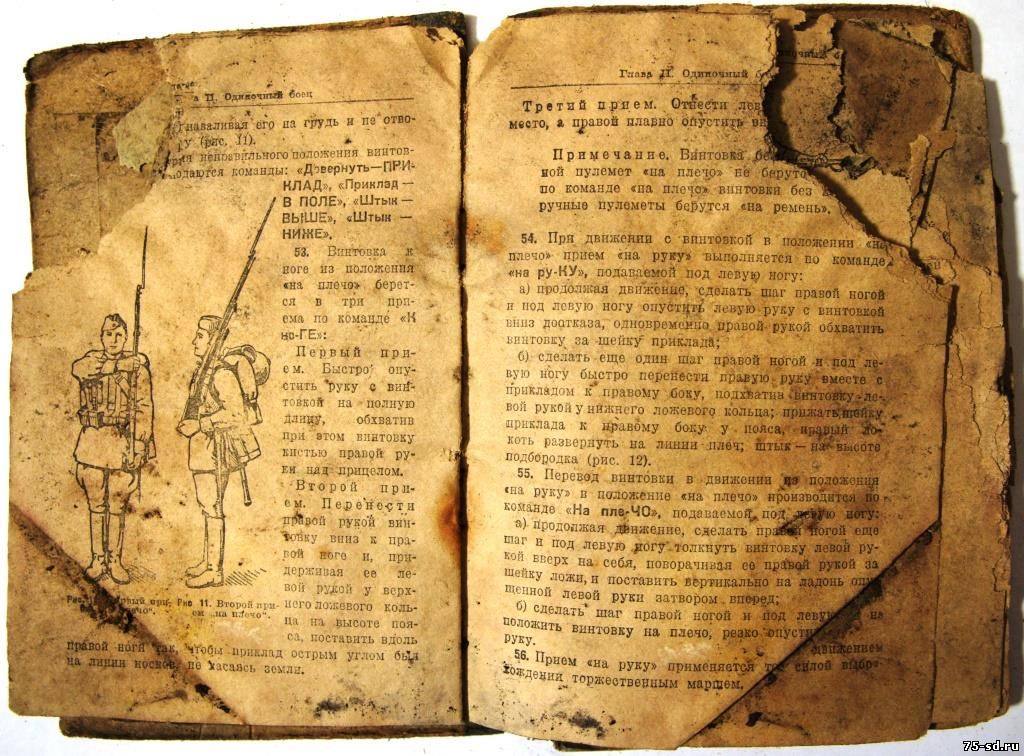 Глава II. Одиночный боец
наваливая его на грудь и не отво-
(рис. 11).
неправильного положения винтов-
подаются команды: «Довернуть—ПРИ-
КЛАД», «Приклад—
В ПОЛЕ», «Штык—
ВЫШЕ», «Штык—
НИЖЕ».
53. Винтовка к
ноге из положения
«на плечо» берет-
ся в три при-
ема по команде «К
но-ГЕ»:
Первый при-
ем. Быстро опу-
стить руку с вин-
товкой на полную
длину, обхватив
при этом винтовку
кистью правой ру-
ки над прицелом.
Второй при-
ем. Перенести
правой рукой вин-
товку вниз к пра-
вой ноге и, при-
держивая ее ле-
вой рукой у верх-
него ложевого коль-
ца на высоте поя-
са, поставить вдоль
Рис. 11. Второй при-
ем „на плечо“.
правой ноги так, чтобы приклад острым углом был
на линии носков, не касаясь земли.
Глава II. Одиночный
Третий прием. Отнести
место, а правой плавно опустить
Примечание. Винтовка
ной пулемет «на плечо» не
по команде «на плечо» винтовки без
ручные пулеметы берутся «на ремень».
54. При движении с винтовкой в положении «на
плечо» прием «на руку» выполняется по команде
«на ру-КУ», подаваемой под левую ногу:
а) продолжая движение, сделать шаг правой ногой
и под левую ногу опустить левую руку с винтовкой
вниз доотказа, одновременно правой рукой обхватить
винтовку за шейку приклада;
б) сделать еще один шаг правой ногой и под ле-
вую ногу быстро перенести правую руку вместе с
прикладом к правому боку, подхватив винтовку ле-
вой рукой у нижнего ложевого кольца; прижать шейку
приклада к правому боку у пояса, правый ло-
коть развернуть на линии плеч; штык—на высоте
подбородка (рис. 12).
55. Перевод винтовки в движении из положения
«на руку» в положение «на плечо» производится по
команде «На пле-ЧО», подаваемой под левую ногу:
а) продолжая движение, сделать правой ногой еще
шаг и под левую ногу толкнуть винтовку левой ру-
кой вверх на себя, поворачивая ее правой рукой за
шейку ложи, и поставить вертикально на ладонь
щенной левой руки затвором вперед;
б) сделать шаг правой ногой и под
положить винтовку на плечо, резко
руку.
56. Прием «на руку» применяется
хождении торжественным маршем.
движением
75-sd.ru